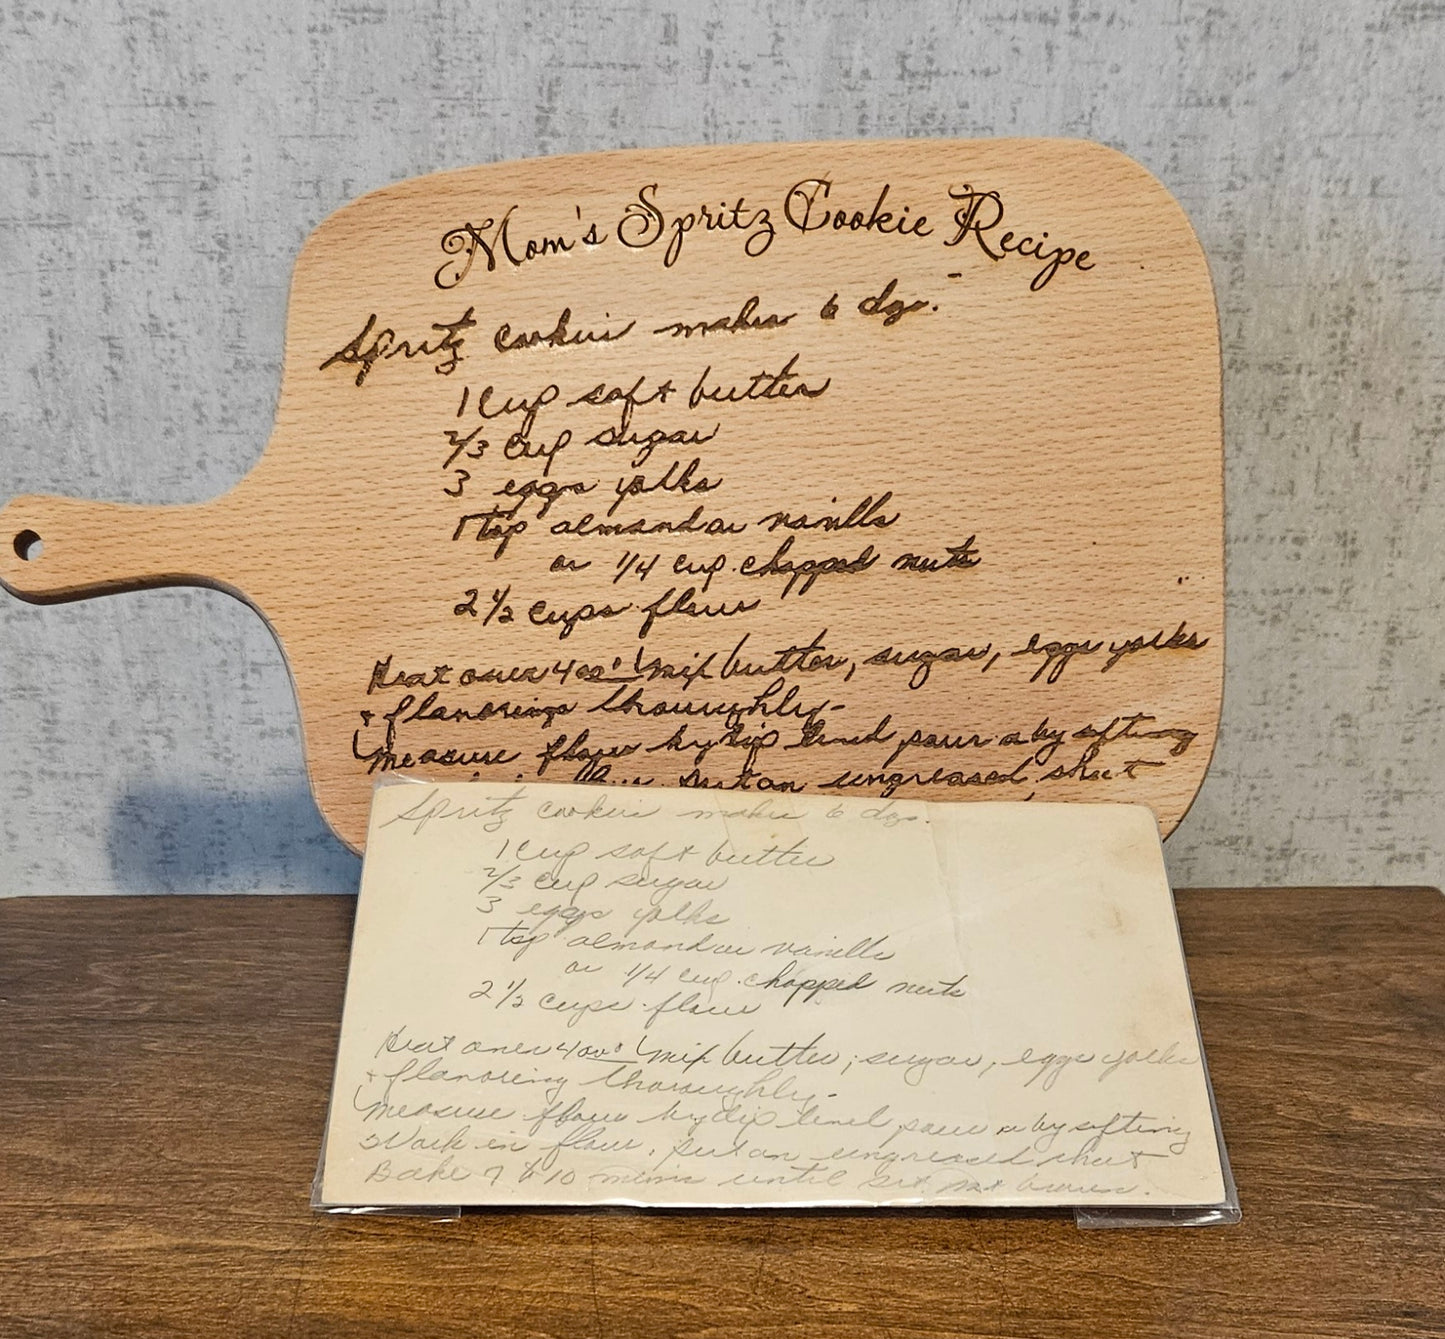 Mom's Spritz Cookie Recipe
Spritz cookies makes 6 dzs.
1 Cup soft butter
2/3 cup sugar
3 eggs yolks
1 tsp almond or vanilla
or 1/4 cup chopped nuts
2 1/2 cups flour
Heat oven 400° Mix butter, sugar, eggs yolks
+ flavorings thoroughly-
Measure flour by dip level pour or by sifting
Put on ungreased sheet
Spritz cookies makes 6 dzs.
1 Cup soft butter
2/3 cup sugar
3 eggs yolks
1 tsp almond or vanilla
or 1/4 cup chopped nuts
2 1/2 cups flour
Heat oven 400° Mix butter, sugar, eggs yolks
+ flavoring thoroughly-
Measure flour by dip level pour or by sifting
Work in flour. Put on ungreased sheet
Bake 7 to 10 mins until set not brown.